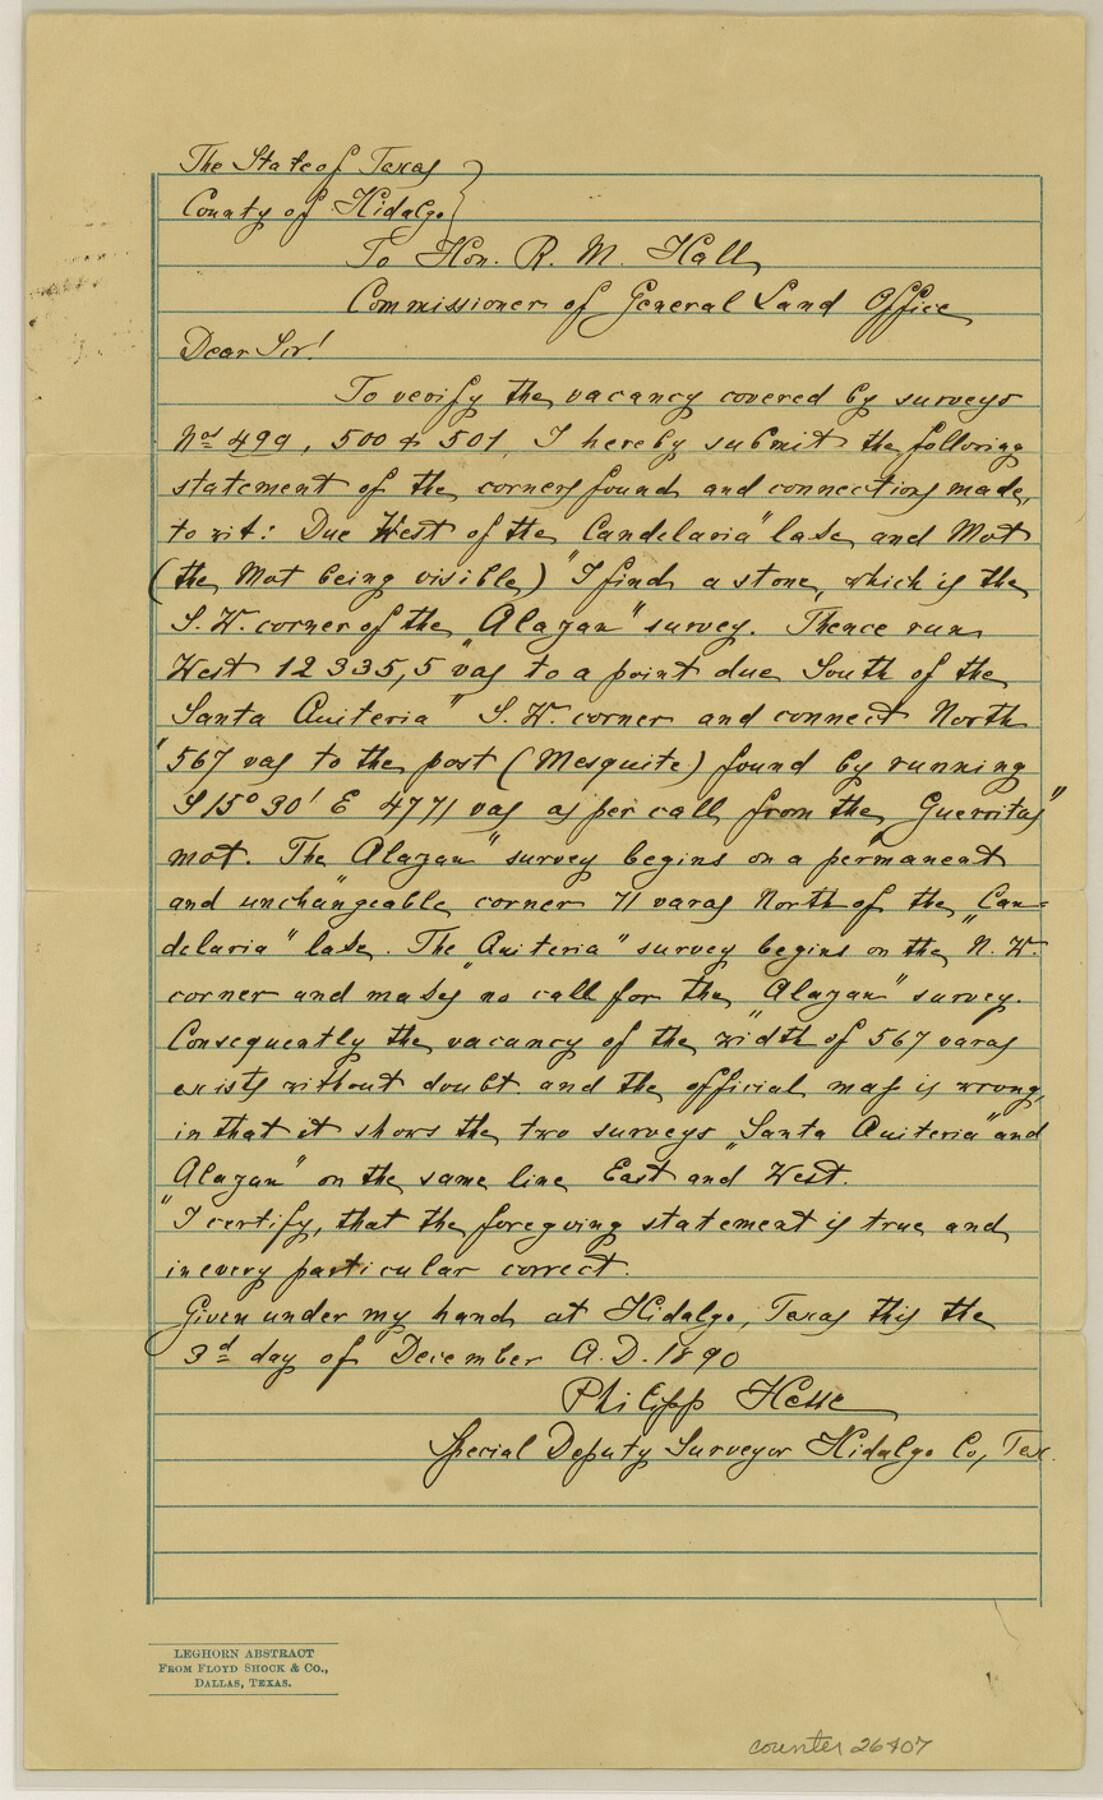 The State of Texas }
County of Hidalgo }
To Hon. R. M. Hall,
Commissioner of General Land Office
Dear Sir!
To verify the vacancy covered by surveys
Nos 499, 500 & 501, I hereby submit the following
statement of the corners found and connections made,
to wit: Due West of the „Candelaria" lake and Mot
(the Mot being visible) I find a stone, which is the
S. W. corner of the „Alazan" survey. Thence run
West 12335,5 vas to a point due South of the
„Santa Quiteria" S. W. corner and connect North
567 vas to the post (Mesquite) found by running
S 15° 30' E 4771 vas as per call from the „Guerritas"
mot. The „Alazan" survey begins on a permanent
and unchangeable corner 71 varas North of the „Can=
delaria" lake. The „Quiteria" survey begins on the N. W.
corner and makes no call for the „Alazan" survey.
Consequently the vacancy of the width of 567 varas
exists without doubt and the official map is wrong,
in that it shows the two surveys „Santa Quiteria" and
„Alazan" on the same line East and West.
I certify, that the foregoing statement is true and
in every particular correct.
Given under my hand at Hidalgo, Texas this the
3d day of December A. D. 1890
Philipp Hesse
Special Deputy Surveyor Hidalgo Co, Tex.
LEGHORN ABSTRACT
FROM FLOYD SHOCK & CO.,
DALLAS, TEXAS.
counter 26407